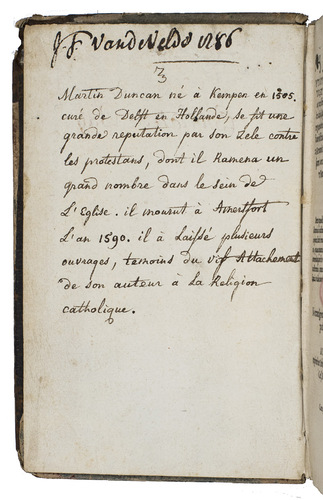 J F VandeVelde 1786
Martin Duncan né à Kempen en 1505.
curé de Delft en Hollande, se fit une
grande reputation par son Zele contre
les protestans, dont il Ramena un
grand nombre dans le sein de
L'Eglise. il mourut à Amersfort
L'an 1590. il à Laissé plusieurs
ouvrages, temoins du vif Attachement
de son auteur à La Religion
catholique.